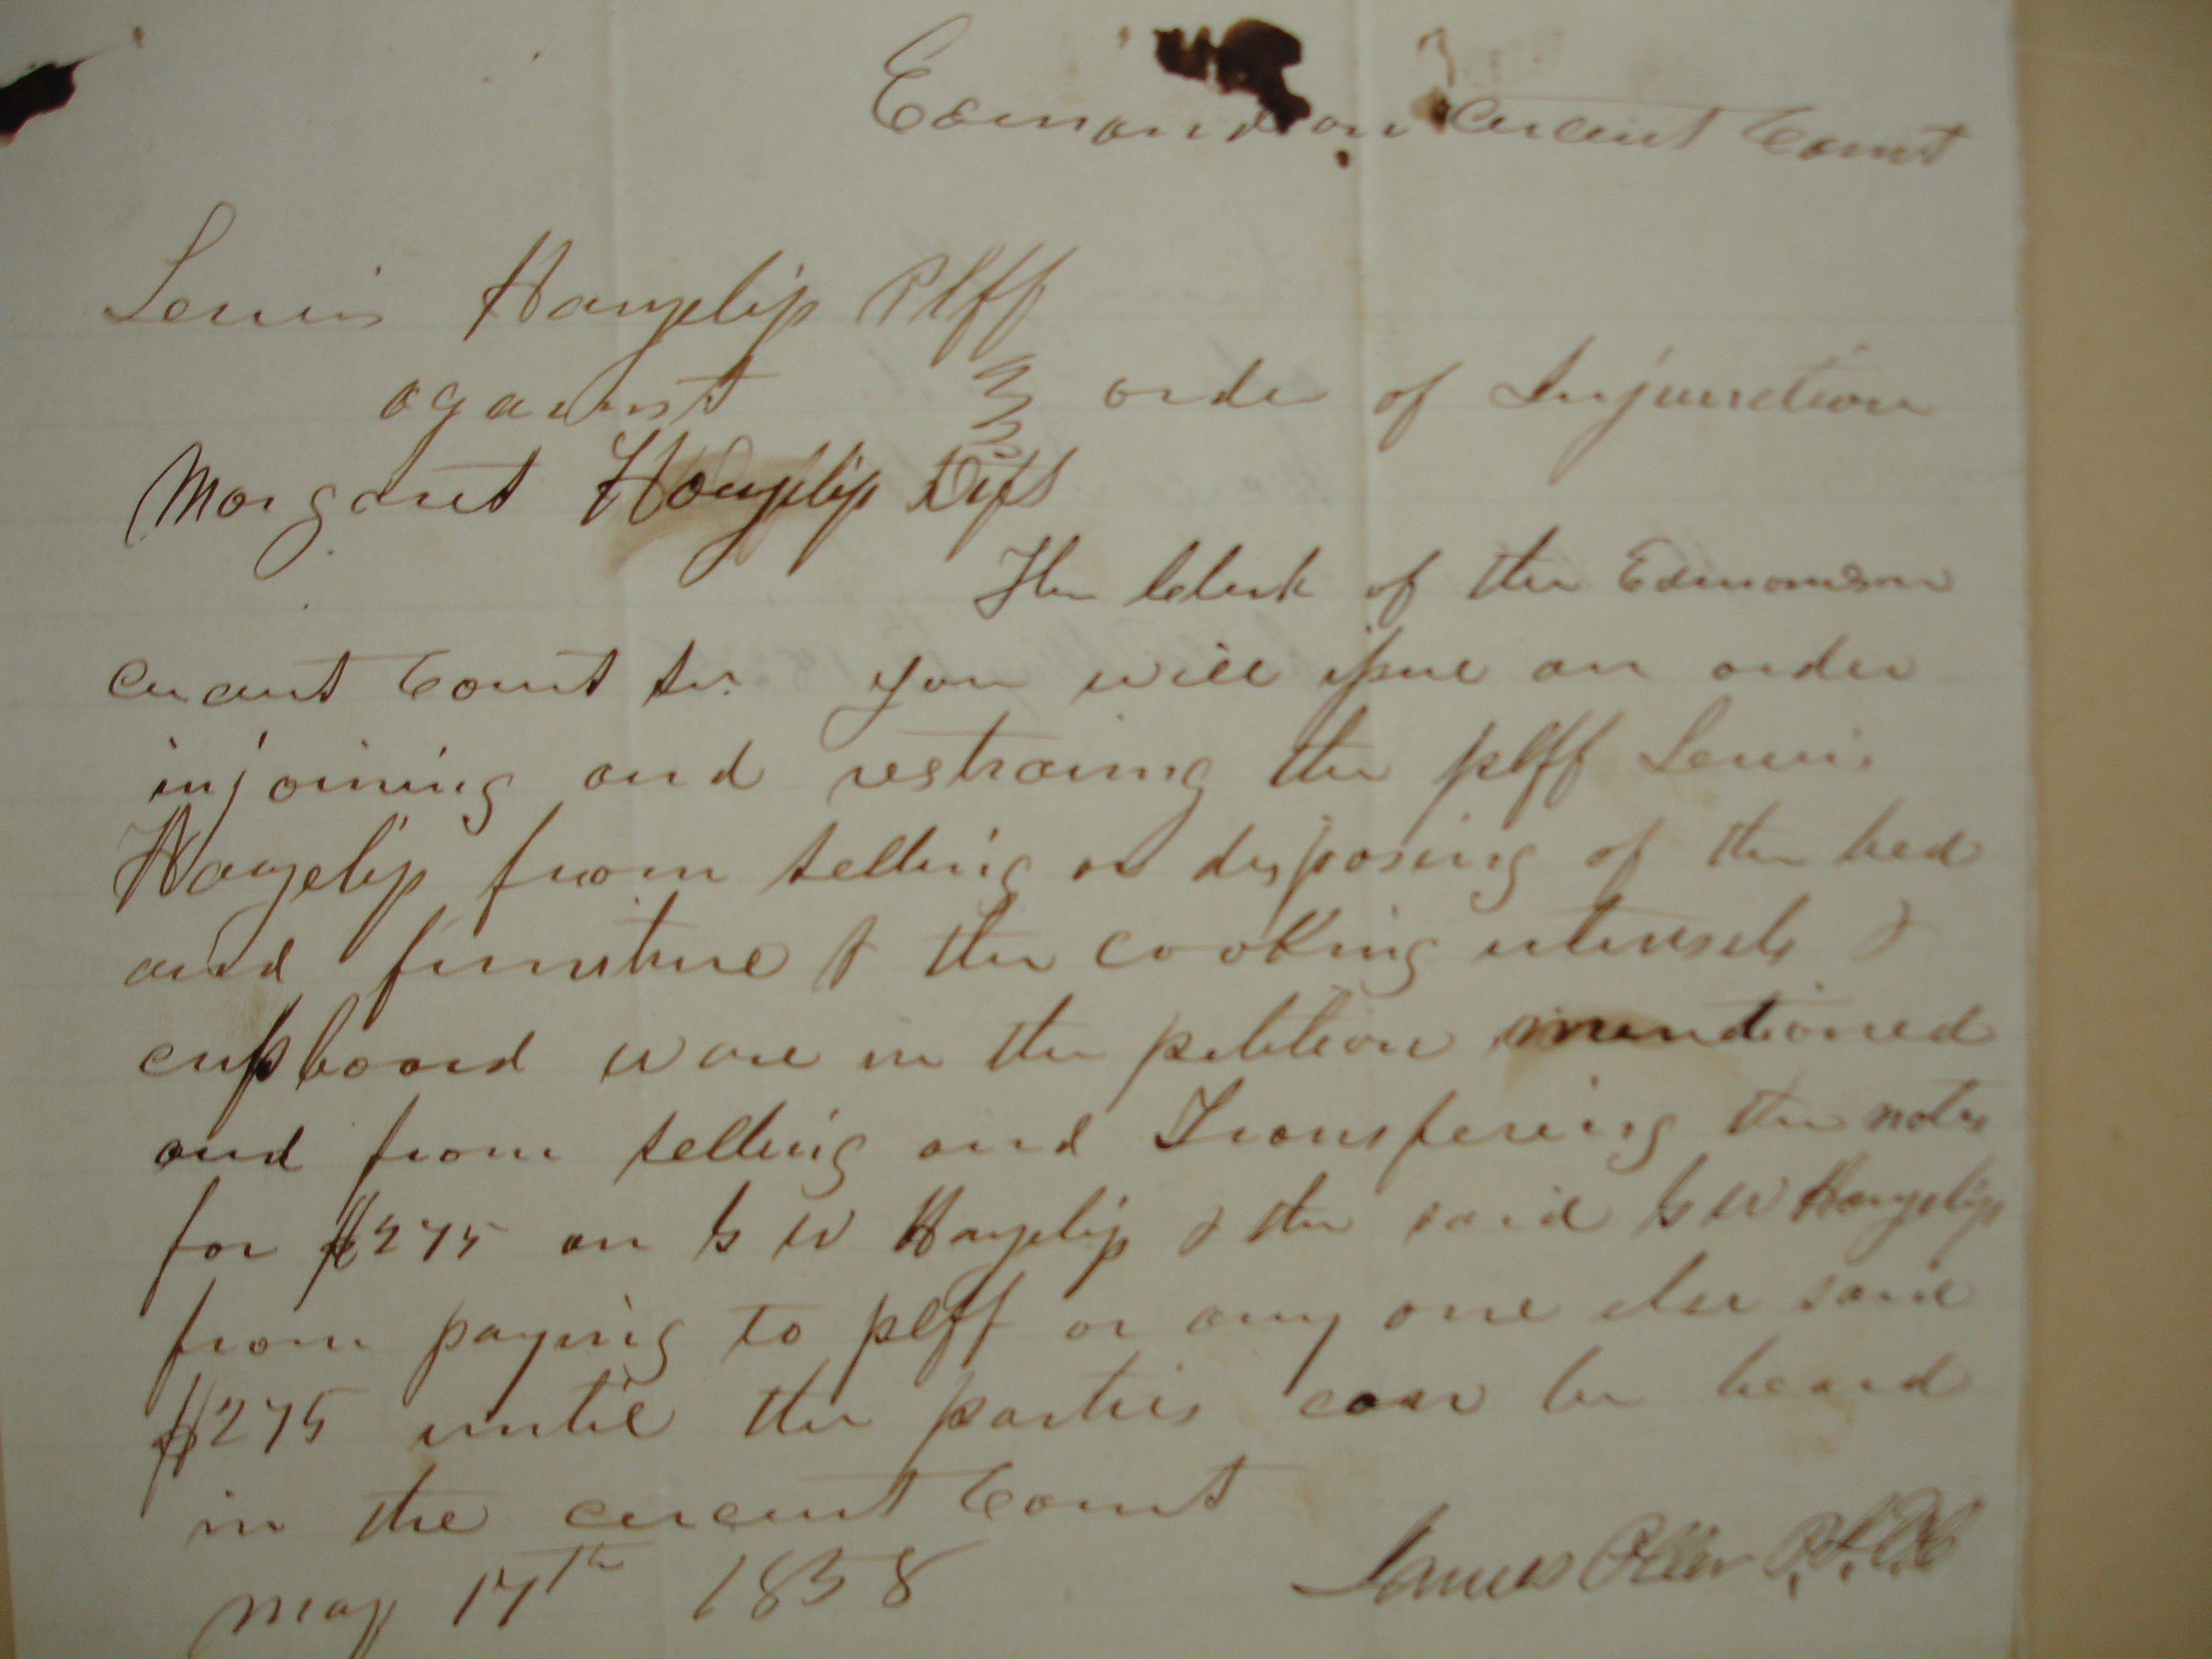 Edmondson circuit Court
Lewis Hayslip Plff
against } order of Injunction
Margaret Hayslip Dift
The Clerk of the Edmonson
circuit Court Sir you will issue an order
injoining and restraing the plff Lewis
Hayslip from selling or disposing of the bed
and furniture & the cooking utensels &
cupboard ware in the petition mentioned
and from selling and Transfering the notes
for $275 on G W Hayslip & the said G W Hayslip
from paying to plff or any one else said
$275 until the parties can be heard
in the circuit Court
may 17th 1858
James